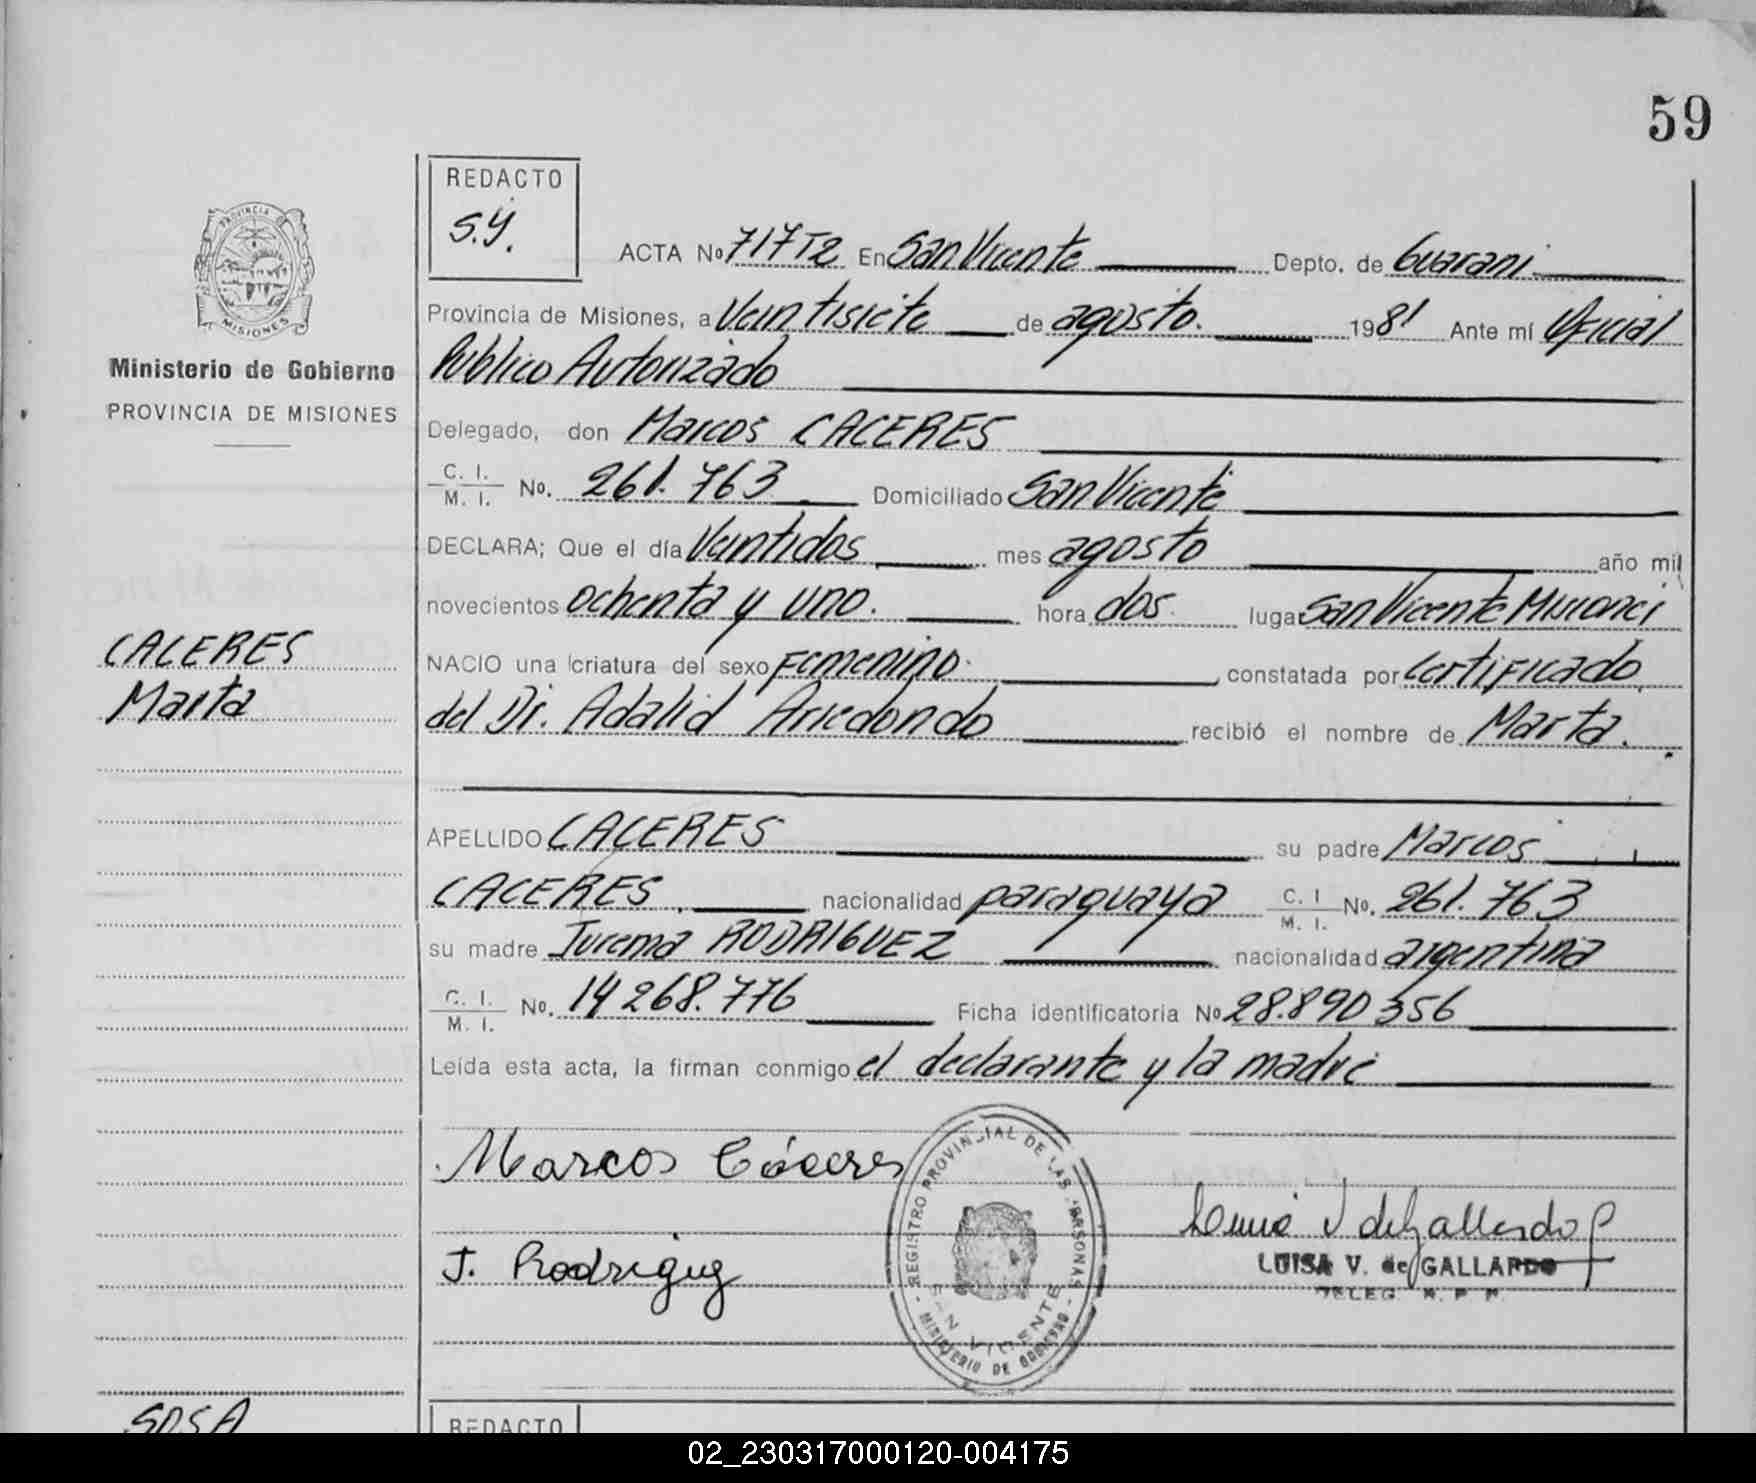 59
REDACTO
S.Y.
PROVINCIA DE
MISIONES
Ministerio de Gobierno
PROVINCIA DE MISIONES
CACERES
Marta
ACTA No 717T2 En San Vicente Depto. de Guarani
Provincia de Misiones, a Veintisiete de agosto. 1981 Ante mí Oficial
Publico Autorizado
Delegado, don Marcos CACERES
C. I. / M. I. No. 261.763 Domiciliado San Vicente
DECLARA; Que el día Veintidos mes agosto año mil
novecientos ochenta y uno. hora dos. lugar San Vicente Misiones
NACIO una criatura del sexo Femenino. constatada por Certificado
del Dr. Adalid Arredondo recibió el nombre de Marta.
APELLIDO CACERES su padre Marcos
CACERES. nacionalidad paraguaya C. I / M. I. No. 261.763
su madre Jurema RODRIGUEZ nacionalidad argentina
C. I. / M. I. No. 14 268.776 Ficha identificatoria No 28.890 356
Leída esta acta, la firman conmigo el declarante y la madre
Marcos Cáceres
J. Rodriguez
REGISTRO PROVINCIAL DE LAS PERSONAS
SAN VICENTE
MINISTERIO DE GOBIERNO
LUISA V. de GALLARDO
DELEG. R. P. P.
SOSA
REDACTO
02_230317000120-004175